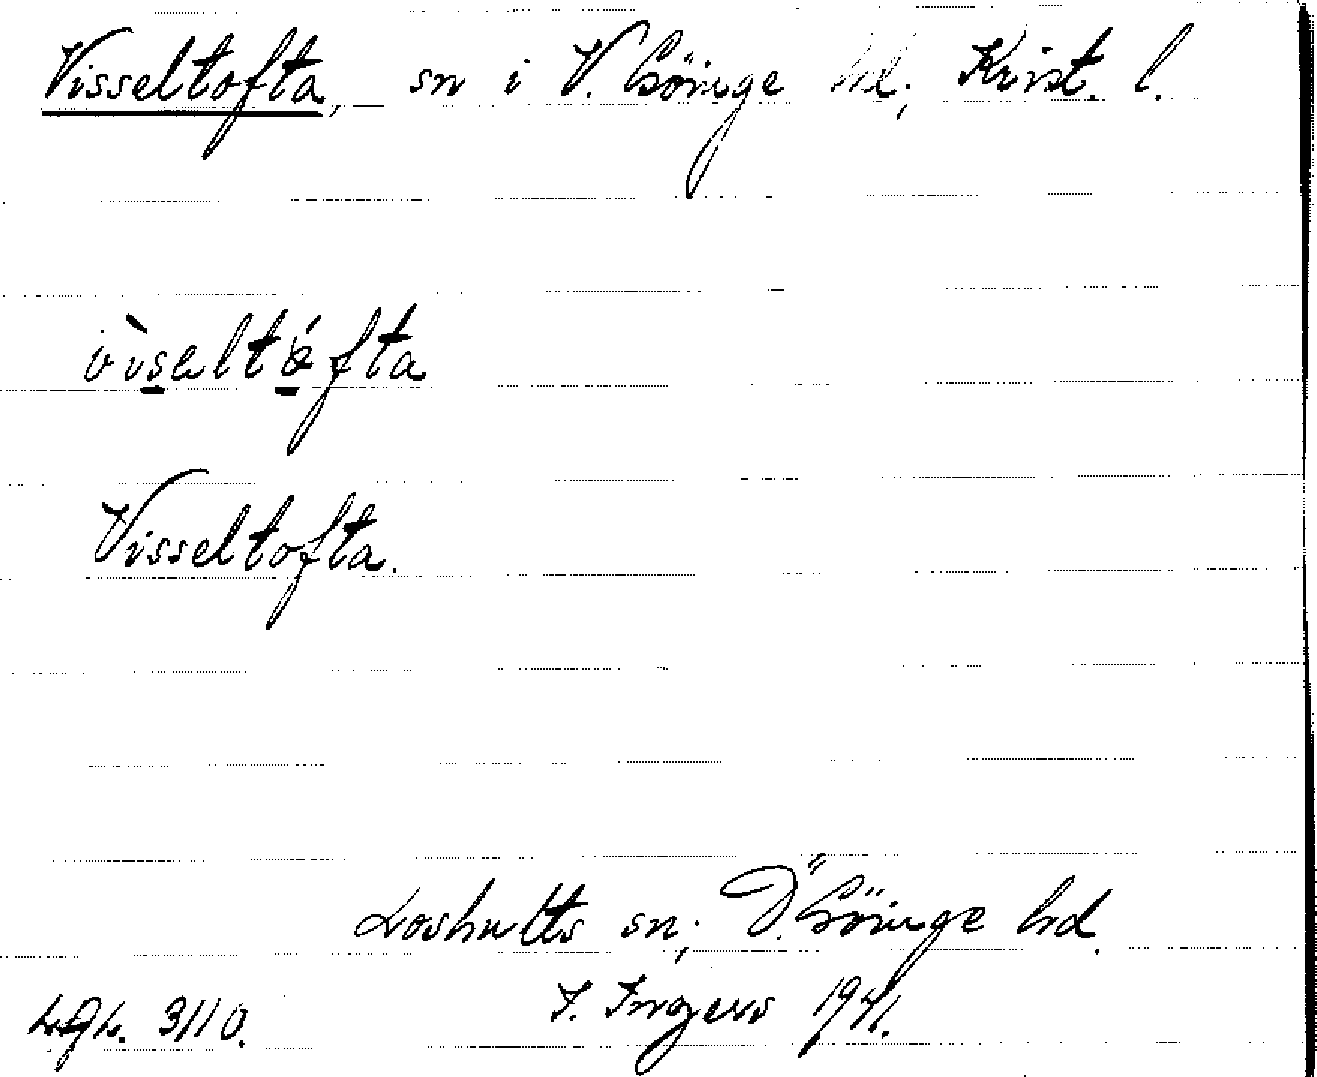 Visseltofta, sn i V. Göinge hd; Krist. l.
vìseltǻfta
Visseltofta.
Loshults sn; Ö. Göinge hd.
LGL. 3110. I. Ingers 1941.